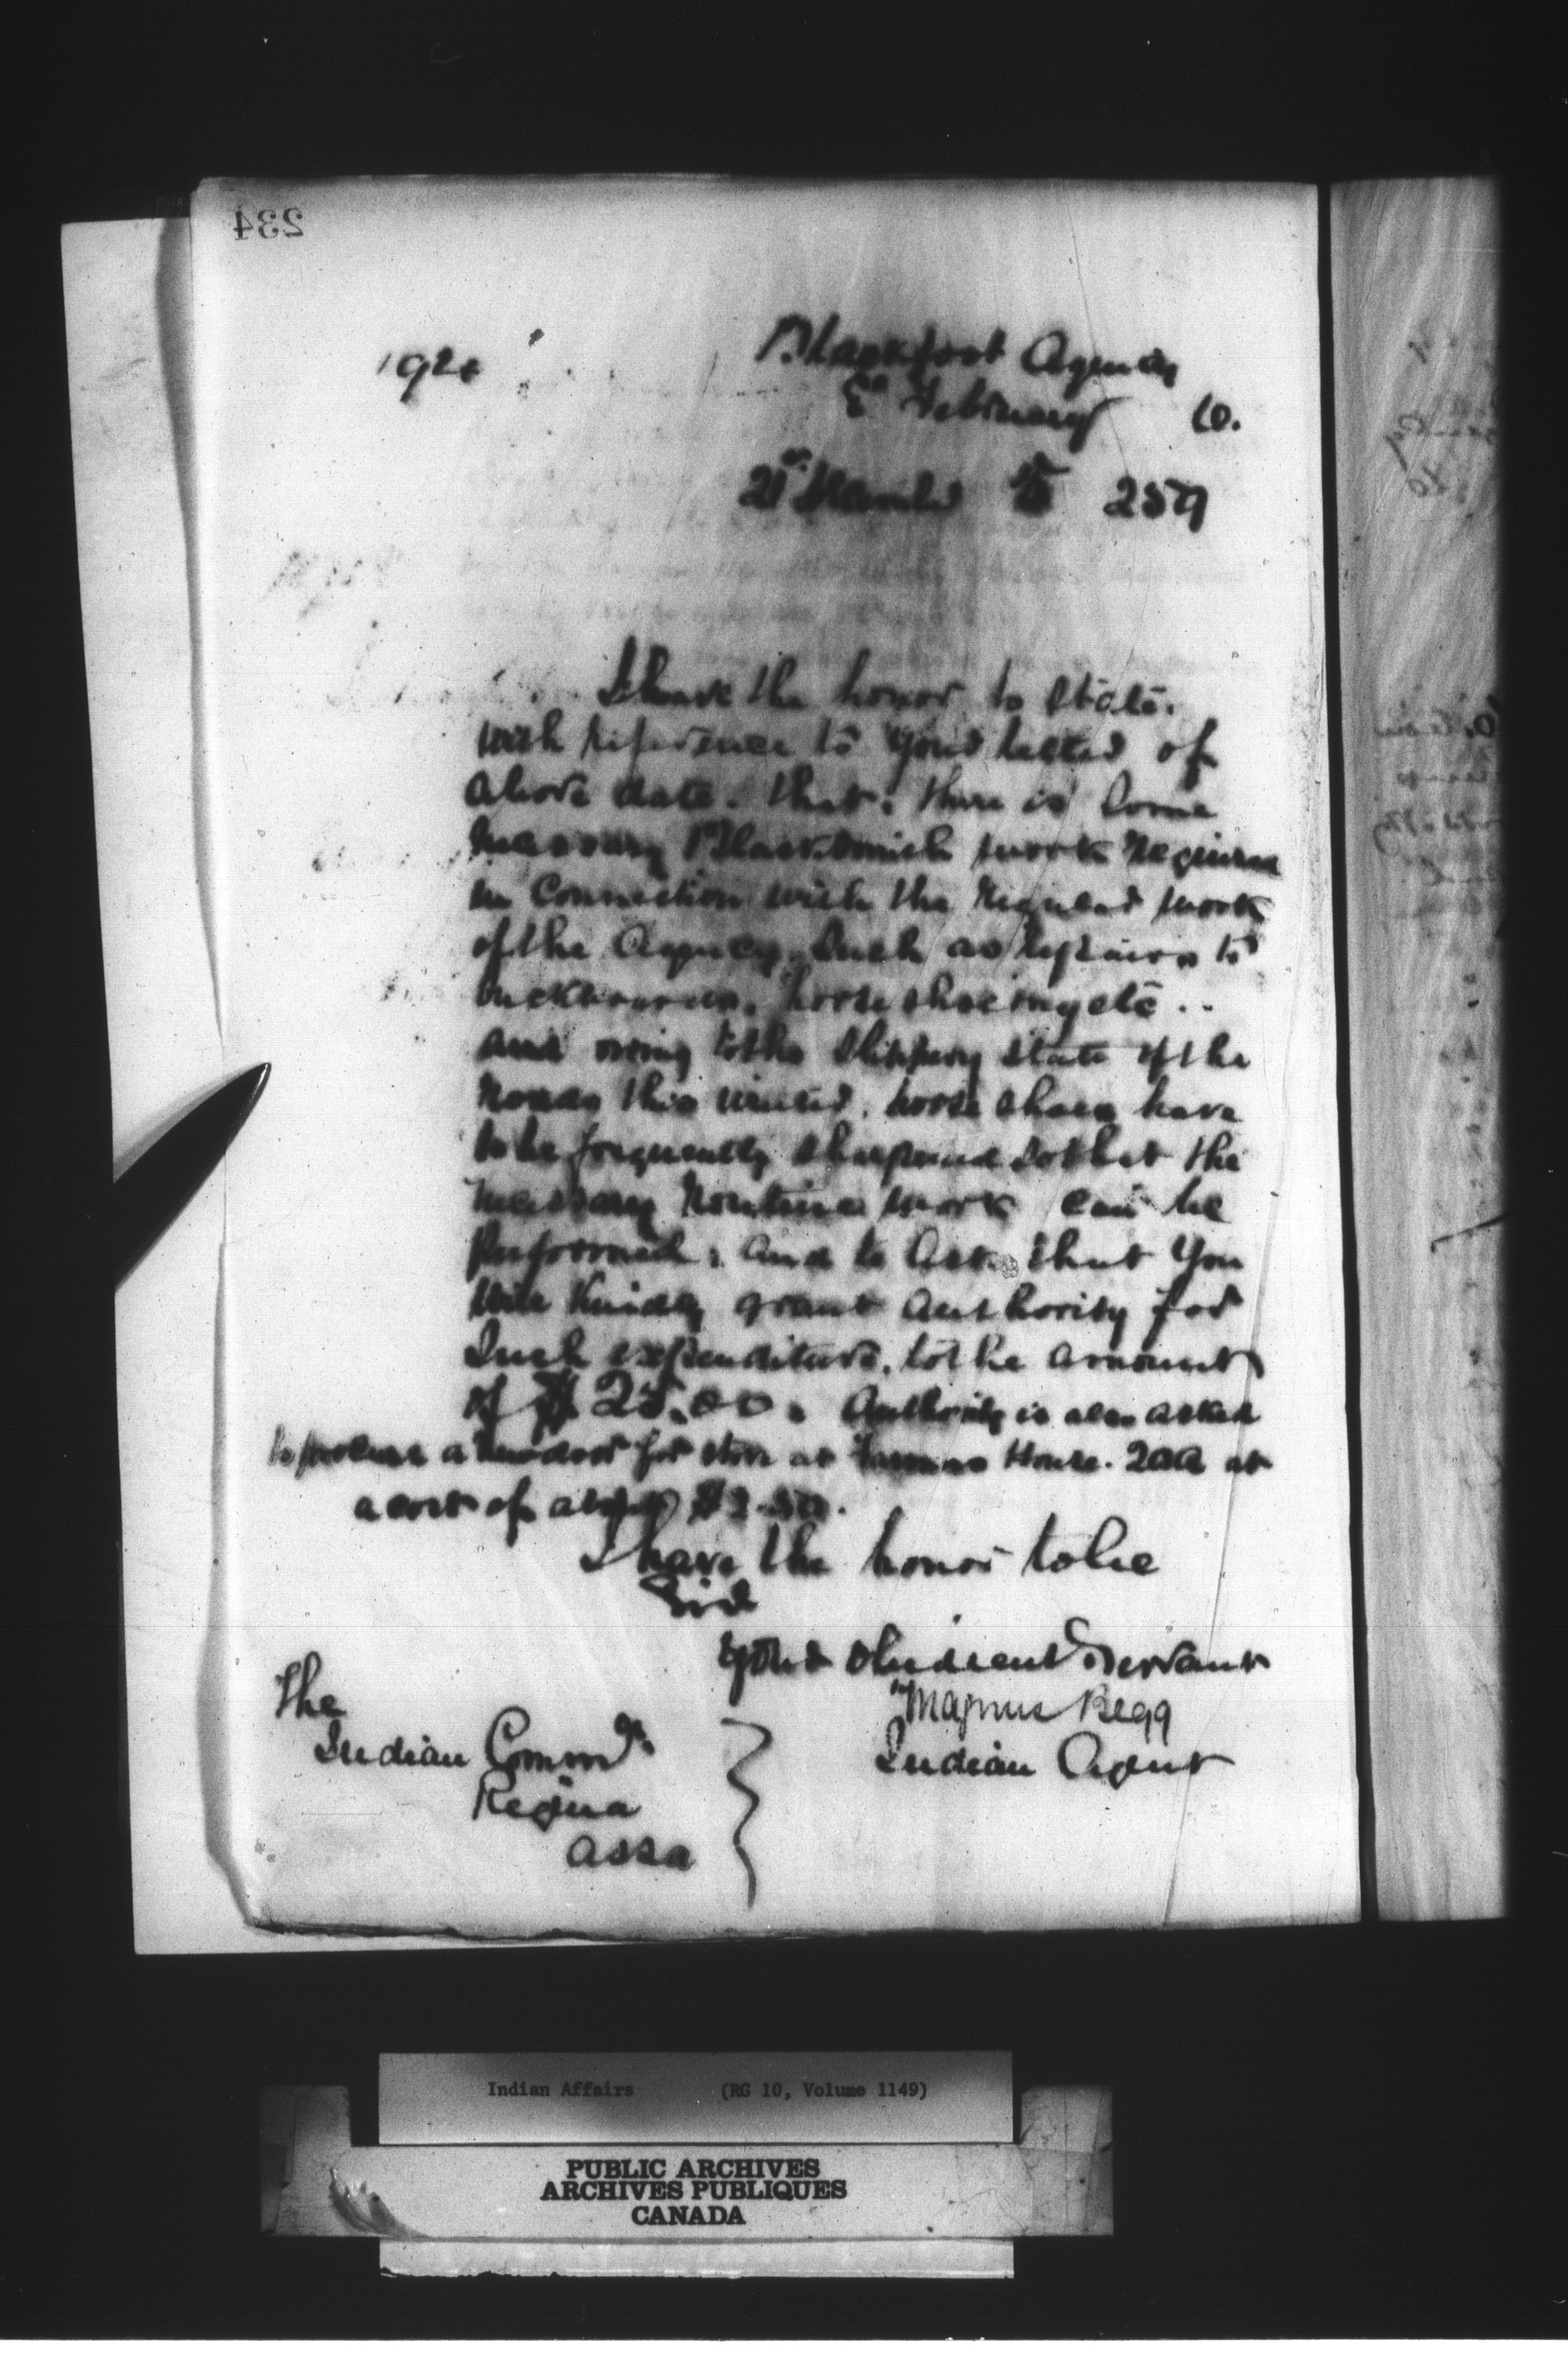 234
Blackfoot Agency
February
21st December 259
I have the honor to state.
with reference to your letter of
above date. that: there is some
necessary Blacksmith work required
in Connection with the regular work
of the Agency, Such as repairs to
horse shoeing etc ..
and owing to the slippery state of the
roads this winter. horse shoes have
to be frequently sharpened so that the
necessary routine work can be
Performed; and to ask that You
will Kindly grant authority for
Such expenditure. to the amount
of $25.00. Authority is also asked
to procure a door for stove at Farmers House. 20A at
a cost of about
I have the honor to be
Sir
Your obedient Servant
Magnus Begg
Indian Agent
The
Indian Commr
Regina
Assa
Indian Affairs (RG 10, Volume 1149)
PUBLIC ARCHIVES
ARCHIVES PUBLIQUES
CANADA